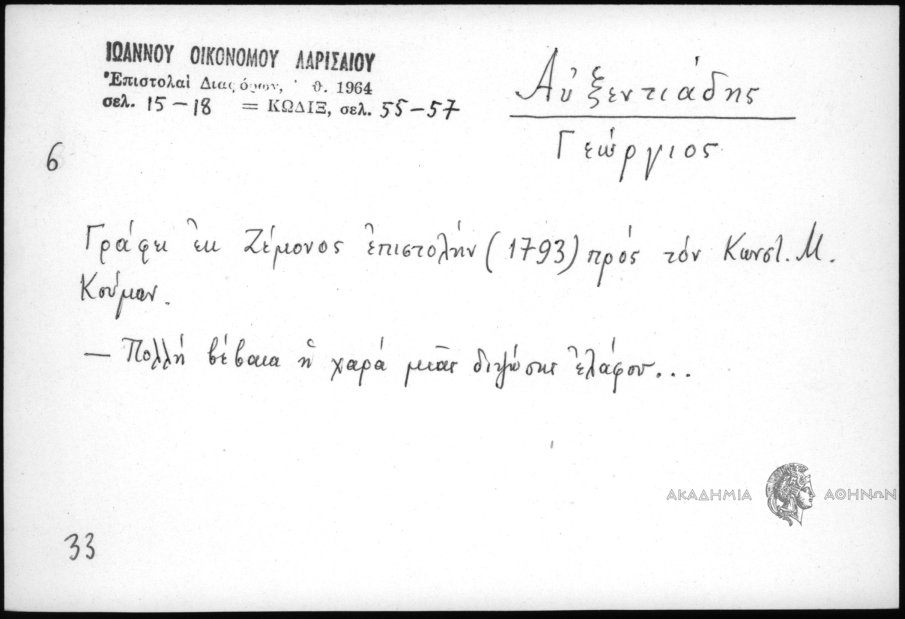 ΙΩΑΝΝΟΥ ΟΙΚΟΝΟΜΟΥ ΛΑΡΙΣΑΙΟΥ
Ἐπιστολαὶ Διαφόρων, 1964
σελ. 15-18 = ΚΩΔΙΞ, σελ. 55-57
Αὐξεντιάδης
Γεώργιος
6
Γράφει ἐκ Ζέμονος ἐπιστολήν (1793) πρός τόν Κωνστ. Μ.
Κούμαν.
— Πολλή βέβαια ἡ χαρά μιᾶς διψώσης ἐλάφου...
ΑΚΑΔΗΜΙΑ ΑΘΗΝΩΝ
33